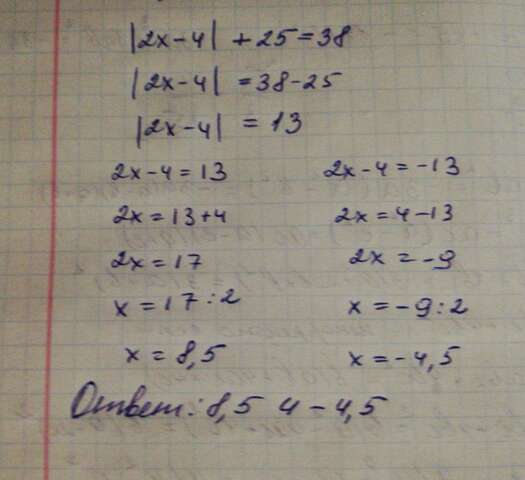 |2x-4| + 25 = 38
|2x-4| = 38-25
|2x-4| = 13
2x-4 = 13
2x = 13+4
2x = 17
x = 17:2
x = 8,5
2x-4 = -13
2x = 4-13
2x = -9
x = -9:2
x = -4,5
Ответ: 8,5 и -4,5